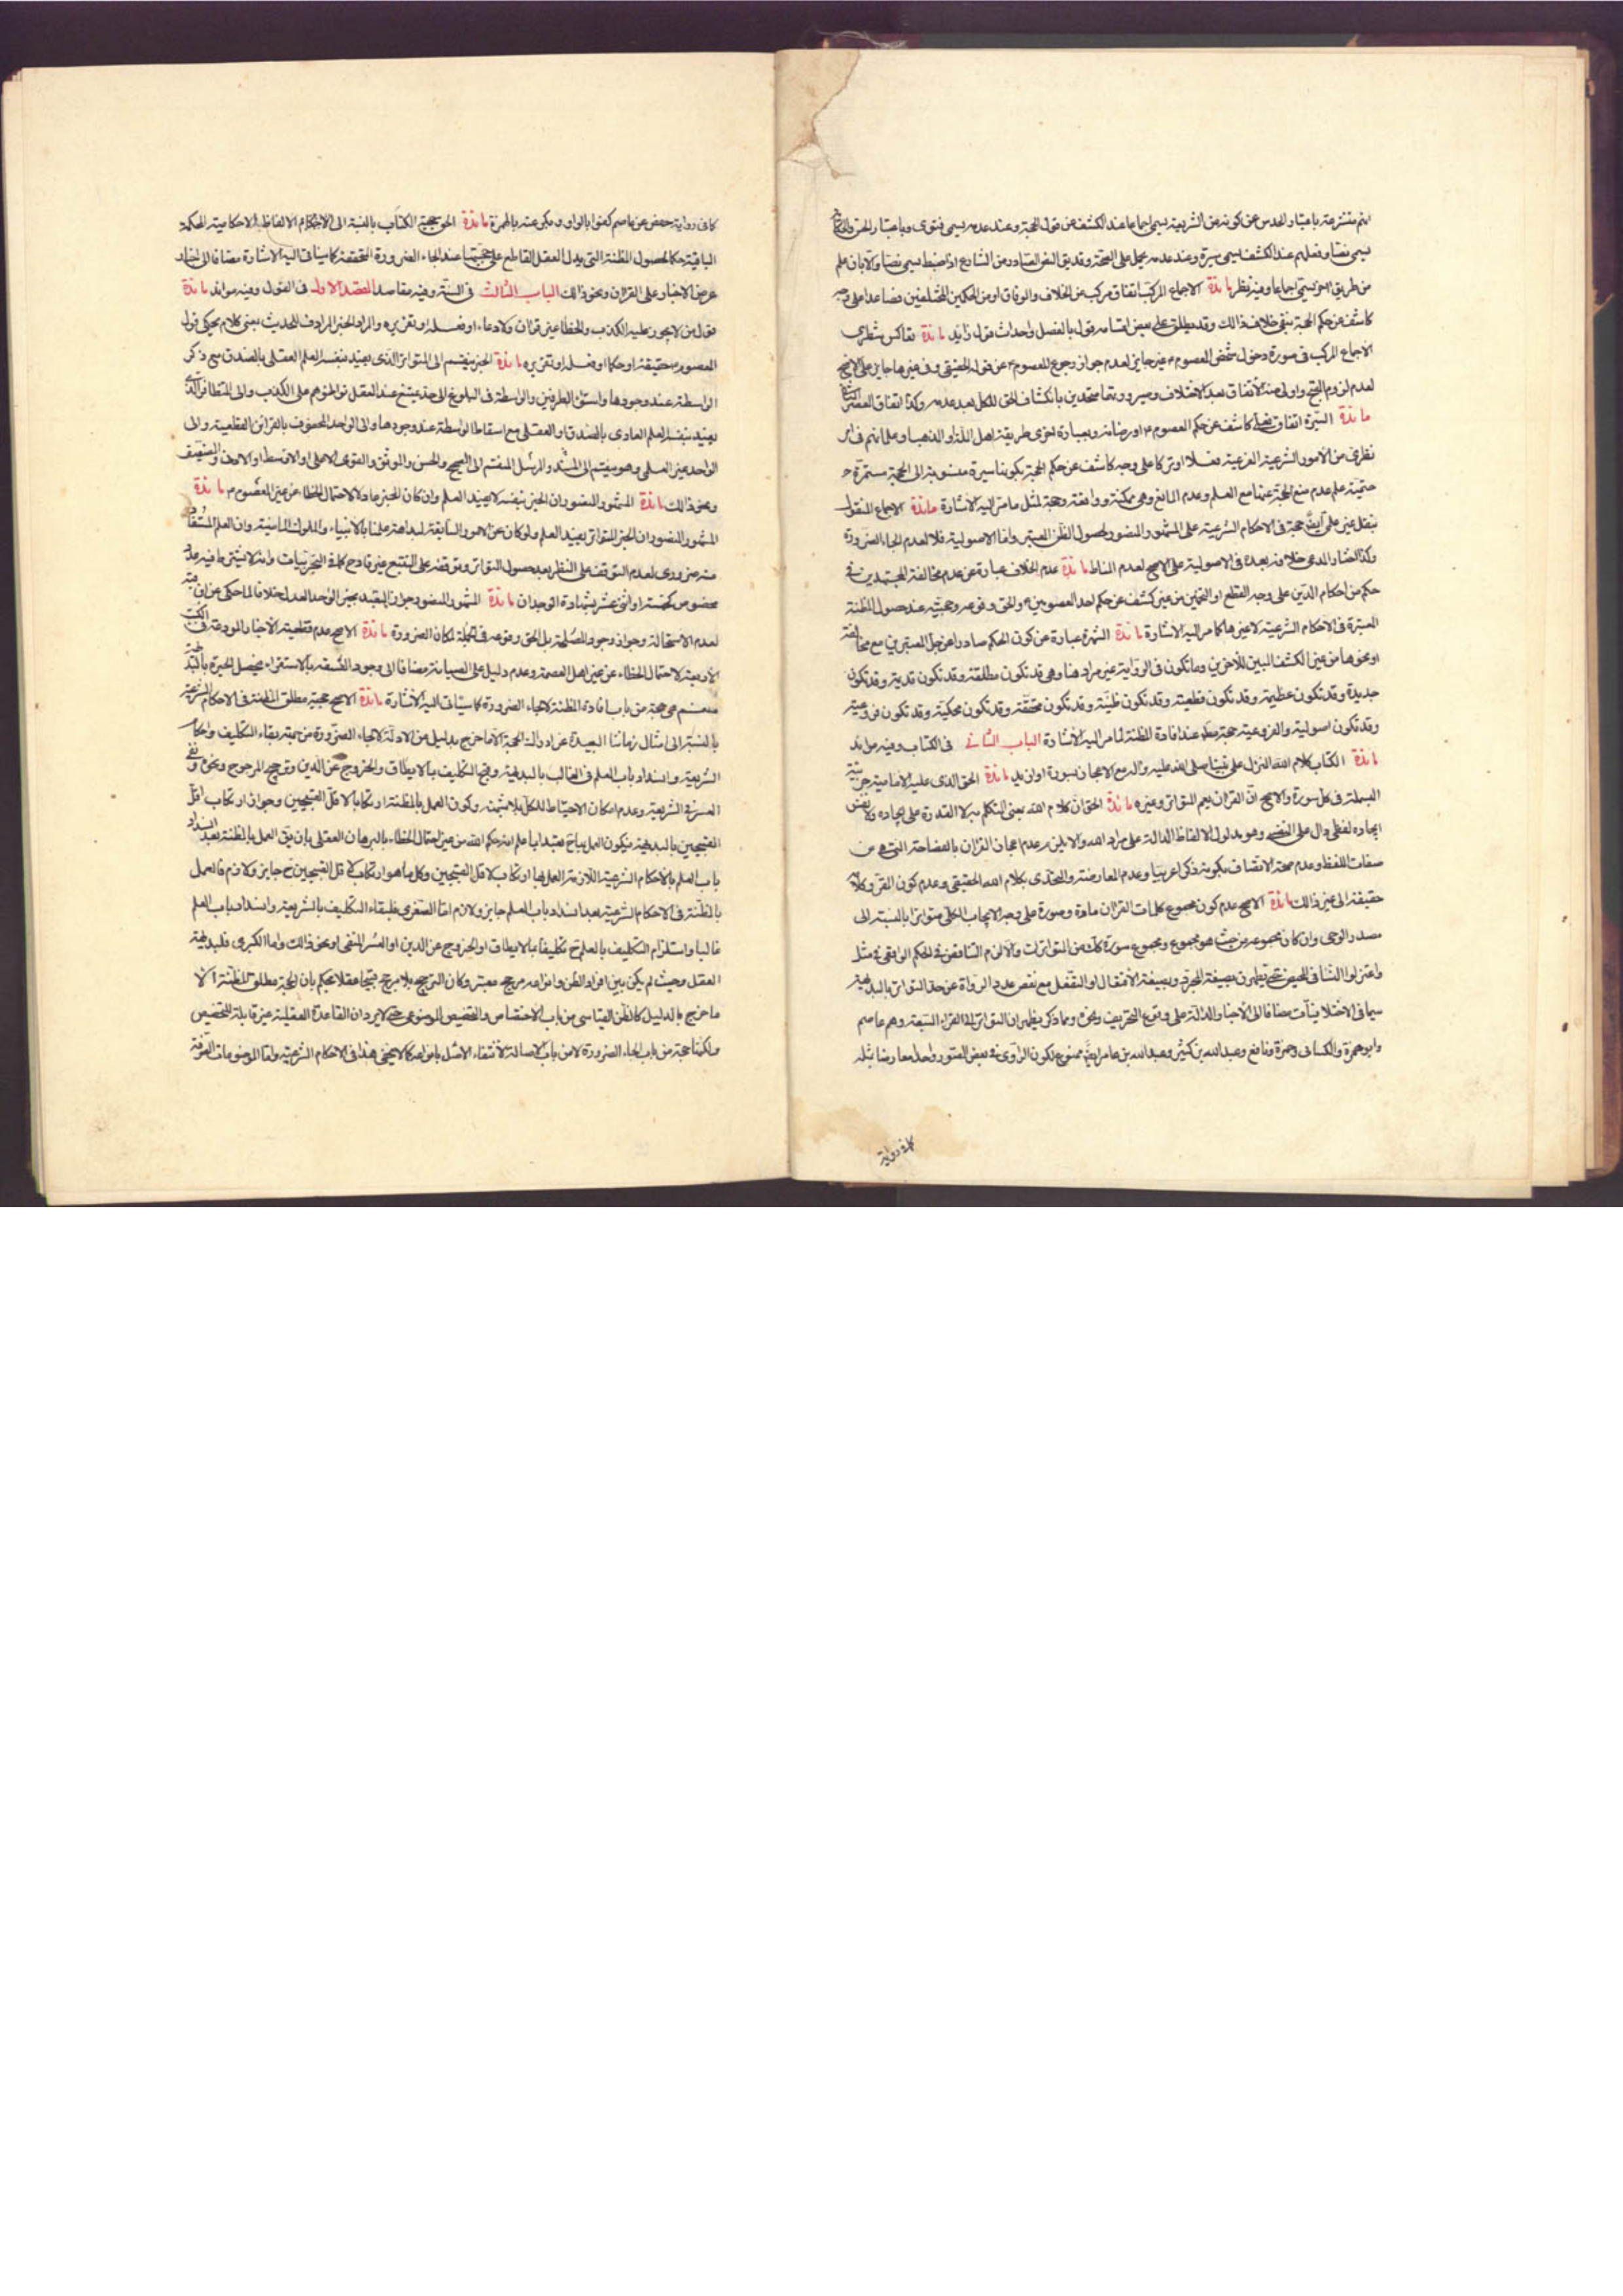 انهم متشرعة باعتبار الحدس عن كونه من الشريعة يسمى اجماعا عند الكشف عن قول الحجة وعند عدمه يسمى فتوى وباعتبار الحس
يسمى نصا وفعلهم عند الكشف يسمى سيرة وعند عدمه يحمل على الصحة وقد يق النص الصادر من الشارع اذا ضبط يسمى نصا والا بان علم
من طريق اخر يسمى اجماعا وفيه نظر مائدة الاجماع المركب اتفاق مركب عن الخلاف والوفاق او من الحكمين المختلفين فصاعدا على وجه
كاشف عن حكم الحجة بنفي خلاف ذالك وقد يطلق على بعض اقسامه قول بالفصل واحداث قول زايد مائدة تعاكس شطرى
الاجماع المركب فى صورة دخول شخص المعصوم م غير جايز لعدم جواز رجوع المعصوم م عن قوله الحقيقى وفى غيرها جايز على الاصح
لعدم لزوم القبح واولى منه الاتفاق بعد الاختلاف وصيرورتها متحدين بانكشاف الحق للكل بعد عدمه وكذا اتفاق العصر
مائدة السيرة اتفاق كاشف عن حكم المعصوم م او رضائه وبعبارة اخرى طريقة اهل اللذ او المذهب او علمائهم فى امر
نظرى من الامور الشرعية الفرعية فعلا او تركا على وجه كاشف عن حكم الحجة بكونها سيرة منسوبة الى الحجة مستمرة
حتمية علم عدم منع الحجة عنها مع العلم وعدم المانع وهى ممكنة وواقعة وحجة لمثل ما مر اليه الاشارة مائدة الاجماع المنقول
بنقل غير على ايض حجة فى الاحكام الشرعية على المشهور المنصور لحصول الظن المعتبر واما الاصولية فلا لعدم الجاء الضرورة
وكذا المدعى خلافه بعده فى الاصولية على الاصح لعدم المناط مائدة عدم الخلاف عبارة عن عدم مخالفة المجتهدين فى
حكم من احكام الدين على وجه القطع او التخمين من غير كشف عن حكم احد المعصومين م والحق وقوعه وحجيته عند حصول المظنة
المعتبرة فى الاحكام الشرعية لا غيرها كما مر اليه الاشارة مائدة الشهرة عبارة عن كون الحكم صادرا عن جل المعتبرين مع مخالفة
او نحوها من غير الكشف المبين للآخرين وما تكون فى الرواية غير مراد هنا وهى قد تكون مطلقة وقد تكون قديمة وقد تكون
جديدة وقد تكون عظيمة وقد تكون قطعية وقد تكون ظنية وقد تكون محققة وقد تكون محكية وقد تكون فروعية
وقد تكون اصولية والفروعية حجة عند افادة المظنة لما مر اليه الاشارة الباب الثانى فى الكتاب وفيه موائد
مائدة الكتاب كلام الله المنزل على نبينا صلى الله عليه وآله مع الاعجاز بسورة او ازيد مائدة الحق الذى عليه الامامية جزئية
البسملة فى كل سورة والاصح ان القران يعم المتواتر وغيره مائدة الحق ان كلام الله بمعنى التكلم به لا القدرة على ايجاده ولا نفس
ايجاده لفظى دال على النفسى وهو مدلول الالفاظ الدالة على مراد الله والا يلزم عدم اعجاز القران بالفصاحة التى هى من
صفات اللفظ وعدم صحة الاتصاف بكونه ذكرا عربيا وعدم المعارضة والتحدى بكلام الله الحقيقى وعدم كون المقرو كلامه
حقيقة الى غير ذالك مائدة الاصح عدم كون مجموع كلمات القران مادة وصورة على وجه الايجاب الكلى متواترا بالنسبة الى
مصدر الوحى وان كان مجموعه من حيث هو مجموع ومجموع سورة كلك من المتواترات والا لزم التناقض فى الحكم الواقعى فى مثل
واعتزلوا النساء فى المحيض حتى يطهرن بصيغة المجرد وبصيغة الافتعال او التفعل مع نقص عدد الرواة عن حد التواتر بالبديهة
سيما فى الاختلافات مضافا الى الاخبار الدالة على وقوع التحريف ونحوه ومما ذكر يظهر ان التواتر الى القراء السبعة وهم عاصم
وابو عمرو والكسائى وحمزة ونافع وعبدالله بن كثير وعبدالله بن عامر ايض ممنوع لكون الراوى فى بعض الصور واحدا معارضا بمثله
كما فى رواية
كما فى رواية حفص عن عاصم كفوا بالواو وبكر عنه بالهمزة مائدة الحق حجية الكتاب بالنسبة الى الاحكام الا لفاظه الاحكامية المحكمة
الباقية حكما لحصول المظنة التى يدل العقل القاطع على حجيتها عند الجاء الضرورة المتحققة كما سياتى اليه الاشارة مضافا الى اخبار
عرض الاخبار على القران ونحو ذالك الباب الثالث فى السنة وفيه مقاصد المقصد الاول فى القول وفيه موائد مائدة
قول من لا يجوز عليه الكذب والخطا غير قران ولا دعاء او فعله او تقريره والمراد الخبر المرادف للحديث بمعنى كلام يحكى قول
المعصوم م حقيقة او حكما او فعله او تقريره مائدة الخبر ينقسم الى المتواتر الذى يفيد بنفسه العلم العقلى بالصدق مع ذكر
الواسطة عند وجودها واستواء الطرفين والواسطة فى البلوغ الى حد يمتنع عند العقل تواطؤهم على الكذب والى المتظافر الذى
يفيد بنفسه العلم العادى بالصدق او العقلى مع اسقاط الواسطة عند وجودها والى الواحد المحفوف بالقرائن القطعية والى
الواحد غير العلمى وهو ينقسم الى المسند والمرسل المنقسم الى الصحيح والحسن والموثق والقوى الاعلى او الاوسط او الادون والضعيف
ونحو ذالك مائدة المشهور المنصور ان الخبر بنفسه لا يفيد العلم وان كان المخبر عادلا لاحتمال الخطاء عن غير المعصوم م مائدة
المشهور المنصور ان الخبر المتواتر يفيد العلم ولو كان عن الامور السابقة لبداهة علمنا بالانبياء والملوك الماضية وان العلم المستفاد
منه ضرورى لعدم التوقف على النظر بعد حصول التواتر وتوقفه على التتبع غير قادح كما فى التجربيات وانه لا يشترط فيه عدد
مخصوص كخمسة او اثنى عشر بشهادة الوجدان مائدة المشهور المنصور جواز التعبد بخبر الواحد العدل خلافا لما حكى عن ابن قبة
لعدم الاستحالة وجواز وجود المصلحة بل الحق وقوعه فى الجملة لمكان الضرورة مائدة الاصح عدم قطعية الاخبار المودعة فى الكتب
الاربعة لاحتمال الخطاء عن غير اهل العصمة وعدم دليل على الصيانة مضافا الى وجود الفسقة بالاستقراء فيحصل الحيرة بالبديهة
نعم هى حجة من باب افادة المظنة لالجاء الضرورة كما سيئات اليه الاشارة مائدة الاصح حجية مطلق المظنة فى الاحكام الشرعية
بالنسبة الى امثال زماننا البعيدة عن ادراك الحجة الا ما خرج بدليل من الادلة لالجاء الضرورة من جهة بقاء التكليف واحكام
الشريعة وانسداد باب العلم فى الغالب بالبديهة وقبح التكليف بما لا يطاق والخروج عن الدين وترجيح المرجوح ونحوه ونفى
العسر فى الشريعة وعدم امكان الاحتياط للكل بلا شبهة وكون العمل بالمظنة ارتكابا لاقل القبيحين وجواز ارتكاب اقل
القبيحين بالبديهة فيكون العمل بها ح متبعا بما علم انه حكم الله من غير احتمال الخطاء بالبرهان العقلى بان يق العمل بالمظنة بعد انسداد
باب العلم بالاحكام الشرعية اللازمة العمل بها ارتكاب لاقل القبيحين وكل ما هو ارتكاب لاقل القبيحين ح جايز ولازم فالعمل
بالمظنة فى الاحكام الشرعية بعد انسداد باب العلم جايز ولازم اما الصغرى فلبقاء التكليف بالشريعة وانسداد باب العلم
غالبا واستلزام التكليف بالعلم ح تكليفا بما لا يطاق او الخروج عن الدين او العسر المنفى او نحو ذالك واما الكبرى فلبديهة
العقل وحيث لم يكن بين افراد الظن وانواعه مرجح معتبر وكان الترجيح بلا مرجح قبيحا عقلا نحكم بان الحجة مطلق المظنة الا
ما خرج بالدليل كالظن القياسى من باب الاختصاص والتخصيص الموضوعى حتى لا يرد ان القاعدة العقلية غير قابلة للتخصيص
ولكنها حجة من باب الجاء الضرورة لا من باب الاصالة لانتفاء الاصل بانواعه كما لا يخفى هذا فى الاحكام الشرعية واما الموضوعات الصرفة